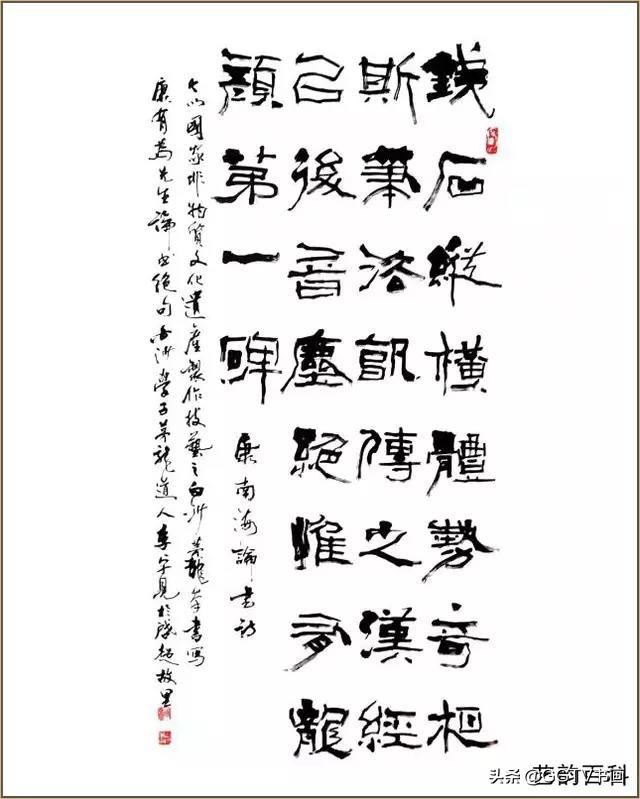 銕石縱橫體勢奇相
斯筆法孰傳之漢經
㠯後音塵絕惟有龍
顏第一碑
康南海論書詩
以國家非物質文化遺產製作技藝之白沙茅龍筆書寫
康有為先生論書絕句白沙學子茅龍道人李見於啟超故里
艺韵百科
头条 @CCTV书画